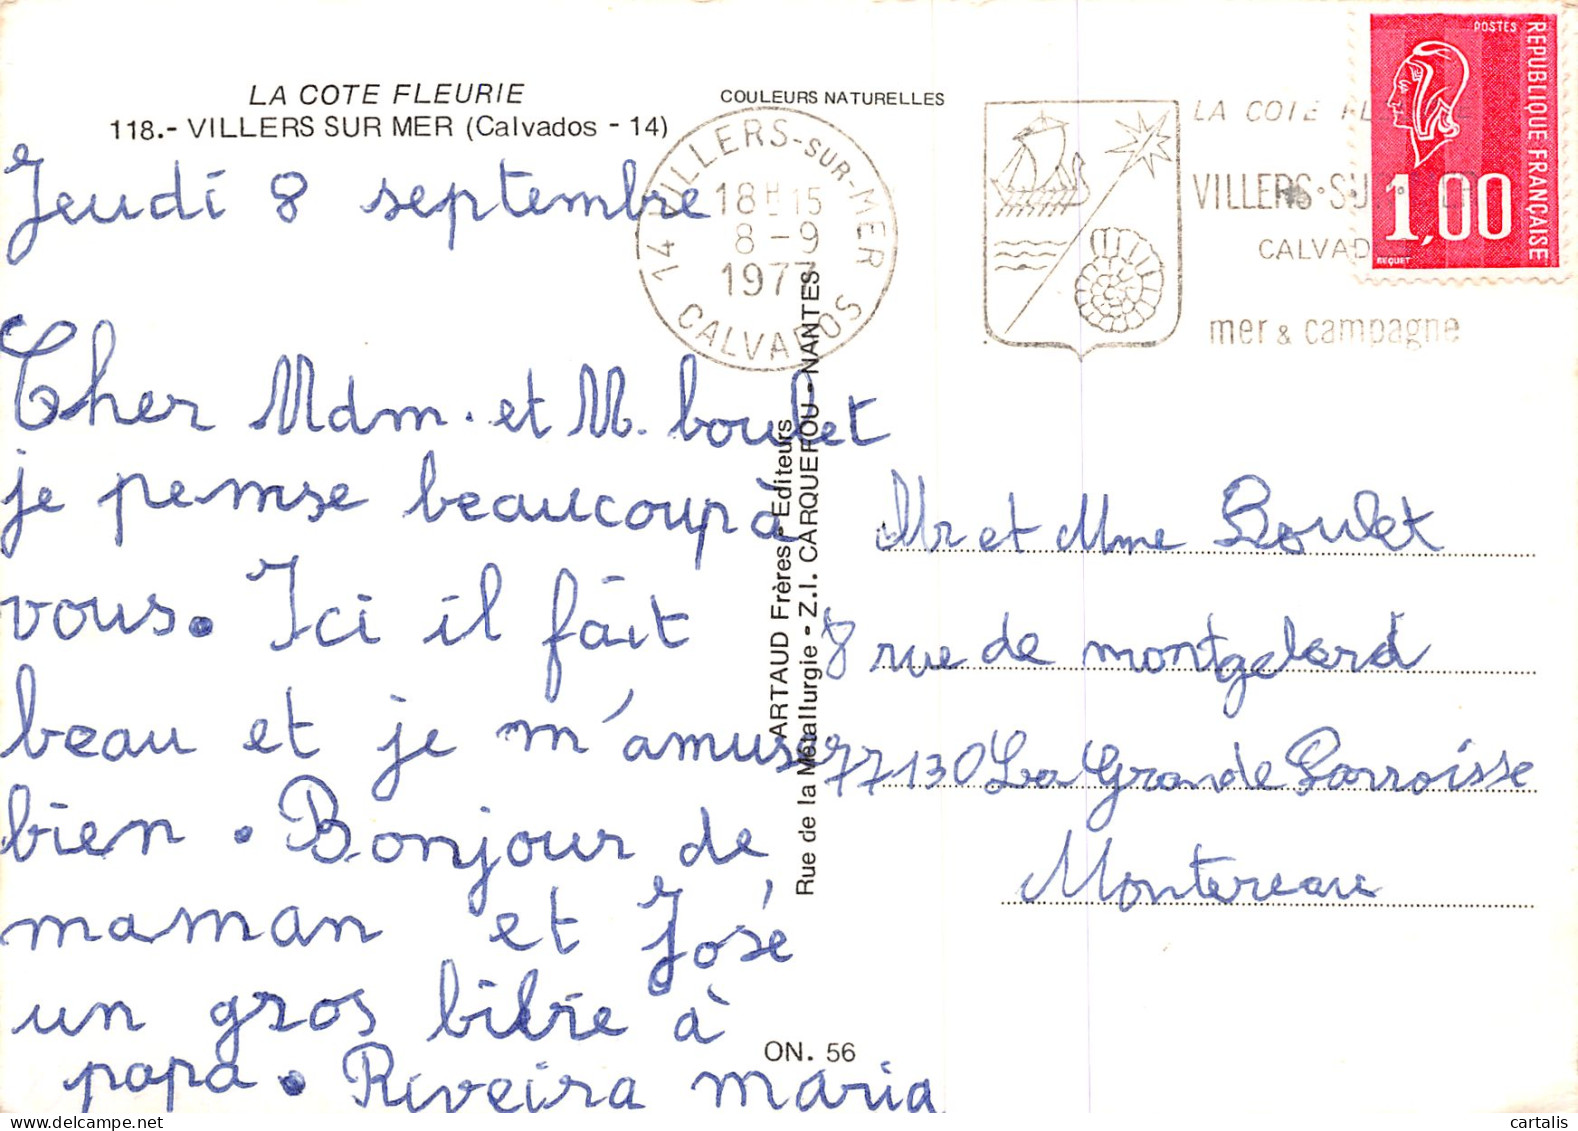 LA COTE FLEURIE
118.- VILLERS SUR MER (Calvados - 14)
COULEURS NATURELLES
Jeudi 8 septembre
Cher Mdm. et M. boulet
je pense beaucoup à
vous. Ici il fait
beau et je m'amuse
bien. Bonjour de
maman et José
un gros à
papa. Riveira maria
14 VILLERS-SUR-MER
18H15
8-9
1977
CALVADOS
LA COTE FL
VILLERS-SU
CALVAD
mer & campagne
POSTES
REPUBLIQUE FRANÇAISE
1,00
BEQUET
ARTAUD Frères - Editeurs
Rue de la Métallurgie - Z.I. CARQUEFOU - NANTES
Mr et Mme Boulet
8 rue de montgelard
77130 La Grande Parroisse
Montereau
ON. 56
cartalis